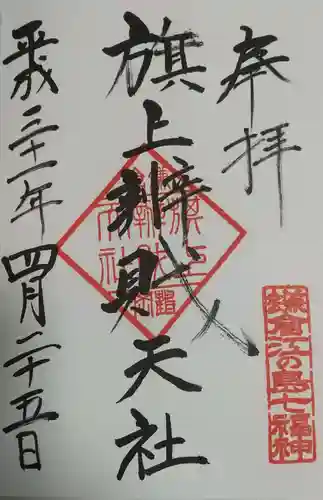 奉拝
鎌倉江の島七福神
旗上辨財天社
平成三十一年四月二十五日